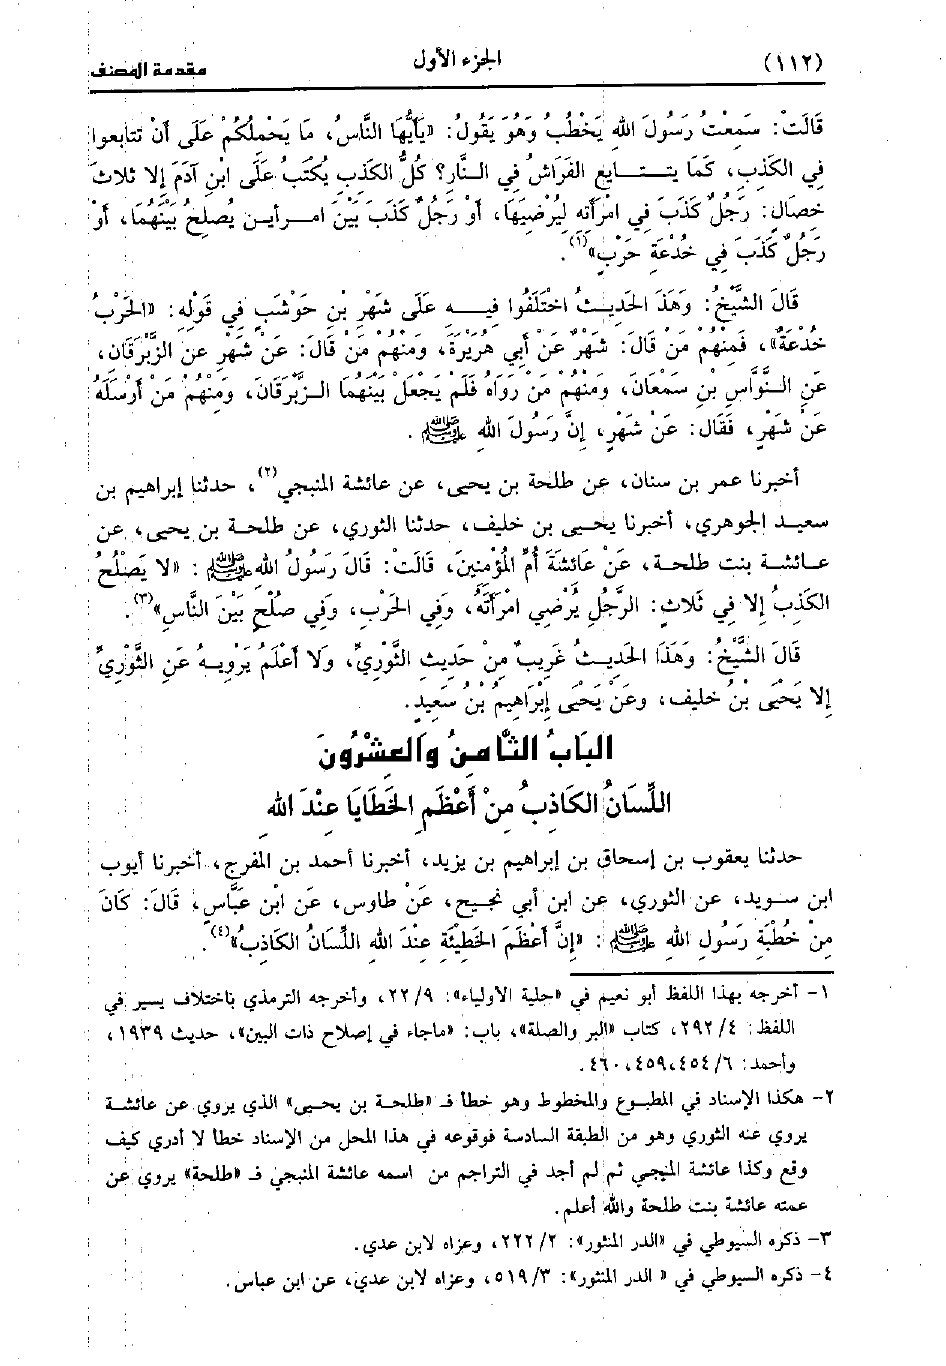 (١١٢)
الجزء الأول
مقدمة المصنف
قَالَتْ: سَمِعْتُ رَسُولَ اللهِ يَخْطُبُ وَهُوَ يَقُولُ: «يَأَيُّهَا النَّاسُ، مَا يَحْمِلُكُمْ عَلَى أَنْ تتابعوا
فِي الكَذِبِ، كَمَا يتتايع الفَرَاشُ فِي النَّارِ؟ كُلُّ الكَذِبِ يُكْتَبُ عَلَى ابْنِ آدَمَ إِلا ثَلاثَ
خِصَالٍ: رَجُلٌ كَذَبَ فِي امْرَأَتِهِ لِيُرْضِيَهَا، أَوْ رَجُلٌ كَذَبَ بَيْنَ امرأين يُصلِحُ بَيْنَهُمَا، أَوْ
رَجُلٌ كَذَبَ فِي خُدْعَةِ حَرْبٍ»(١).
قَالَ الشَّيْخُ: وَهَذَ الحَدِيثُ اخْتَلَفُوا فِيهِ عَلَى شَهْرِ بْنِ حَوْشَبٍ فِي قَوْلِهِ: «الحَرْبُ
خُدْعَةٌ»، فَمِنْهُمْ مَنْ قَالَ: شَهْرٌ عَنْ أَبِي هُرَيْرَةَ، وَمنهُمْ مَنْ قَالَ: عَنْ شَهْرٍ عن الزِّبْرِقَان،
عَنِ النَّوَّاسِ بْنِ سَمْعَانَ، وَمِنْهُمْ مَنْ رَوَاهُ فَلَمْ يَجْعَلْ بَيْنَهُمَا الزِّبْرِقَانَ، وَمِنْهُمْ مَنْ أَرْسَلَهُ
عَنْ شَهْرٍ، فَقَالَ: عَنْ شَهْرٍ، إِنَّ رَسُولَ اللهِ ﷺ.
أخبرنا عمر بن سنان، عن طلحة بن يحيى، عن عائشة المنبجي(٢)، حدثنا إبراهيم بن
سعيد الجوهري، أخبرنا يحيى بن خليف، حدثنا الثوري، عن طلحة بن يحيى، عن
عائشة بنت طلحة، عَنْ عَائِشَةَ أُمِّ المُؤْمِنِينَ، قَالَتْ: قَالَ رَسُولُ اللهِ ﷺ: «لا يَصْلُحُ
الكَذِبُ إِلا فِي ثَلاثٍ: الرَّجُلِ يُرْضِي امْرَأَتَهُ، وَفِي الحَرْبِ، وَفِي صُلْحٍ بَيْنَ النَّاسِ»(٣).
قَالَ الشَّيْخُ: وَهَذَا الحَدِيثُ غَرِيبٌ مِنْ حَدِيثِ الثَّوْرِيِّ، وَلا أَعْلَمُ يَرْوِيهُ عَنِ الثَّوْرِيِّ
إِلا يَحْيَى بْنُ خليف، وعَنْ يَحْيَى إِبْرَاهِيمُ بْنُ سَعِيدٍ.
البَابُ الثَّامِنُ وَالعِشْرُونَ
اللِّسَانُ الكَاذِبُ مِنْ أَعْظَمِ الخَطَايَا عِنْدَ اللهِ
حدثنا يعقوب بن إسحاق بن إبراهيم بن يزيد، أخبرنا أحمد بن المفرج، أخبرنا أيوب
ابن سويد، عن الثوري، عن ابن أبي نجيح، عَنْ طاوس، عَنِ ابن عَبَّاسٍ، قَالَ: كَانَ
مِنْ خُطْبَةِ رَسُولِ اللهِ ﷺ: «إِنَّ أَعْظَمَ الخَطِيئَةِ عِنْدَ اللهِ اللِّسَانُ الكَاذِبُ»(٤).
١- أخرجه بهذا اللفظ أبو نعيم في «حلية الأولياء»: ٢٢/٩، وأخرجه الترمذي باختلاف يسير في
اللفظ: ٢٩٢/٤، كتاب «البر والصلة»، باب: «ماجاء في إصلاح ذات البين»، حديث ١٩٣٩،
وأحمد: ٤٥٤/٦، ٤٥٩، ٤٦٠.
٢- هكذا الإسناد في المطبوع والمخطوط وهو خطأ فـ «طلحة بن يحيى» الذي يروي عن عائشة
يروي عنه الثوري وهو من الطبقة السادسة فوقوعه في هذا المحل من الإسناد خطأ لا أدري كيف
وقع وكذا عائشة المنبجي ثم لم أجد في التراجم من اسمه عائشة المنبجي فـ «طلحة» يروي عن
عمته عائشة بنت طلحة والله أعلم.
٣- ذكره السيوطي في «الدر المنثور»: ٢٢٢/٢، وعزاه لابن عدي.
٤- ذكره السيوطي في « الدر المنثور»: ٥١٩/٣، وعزاه لابن عدي، عن ابن عباس.